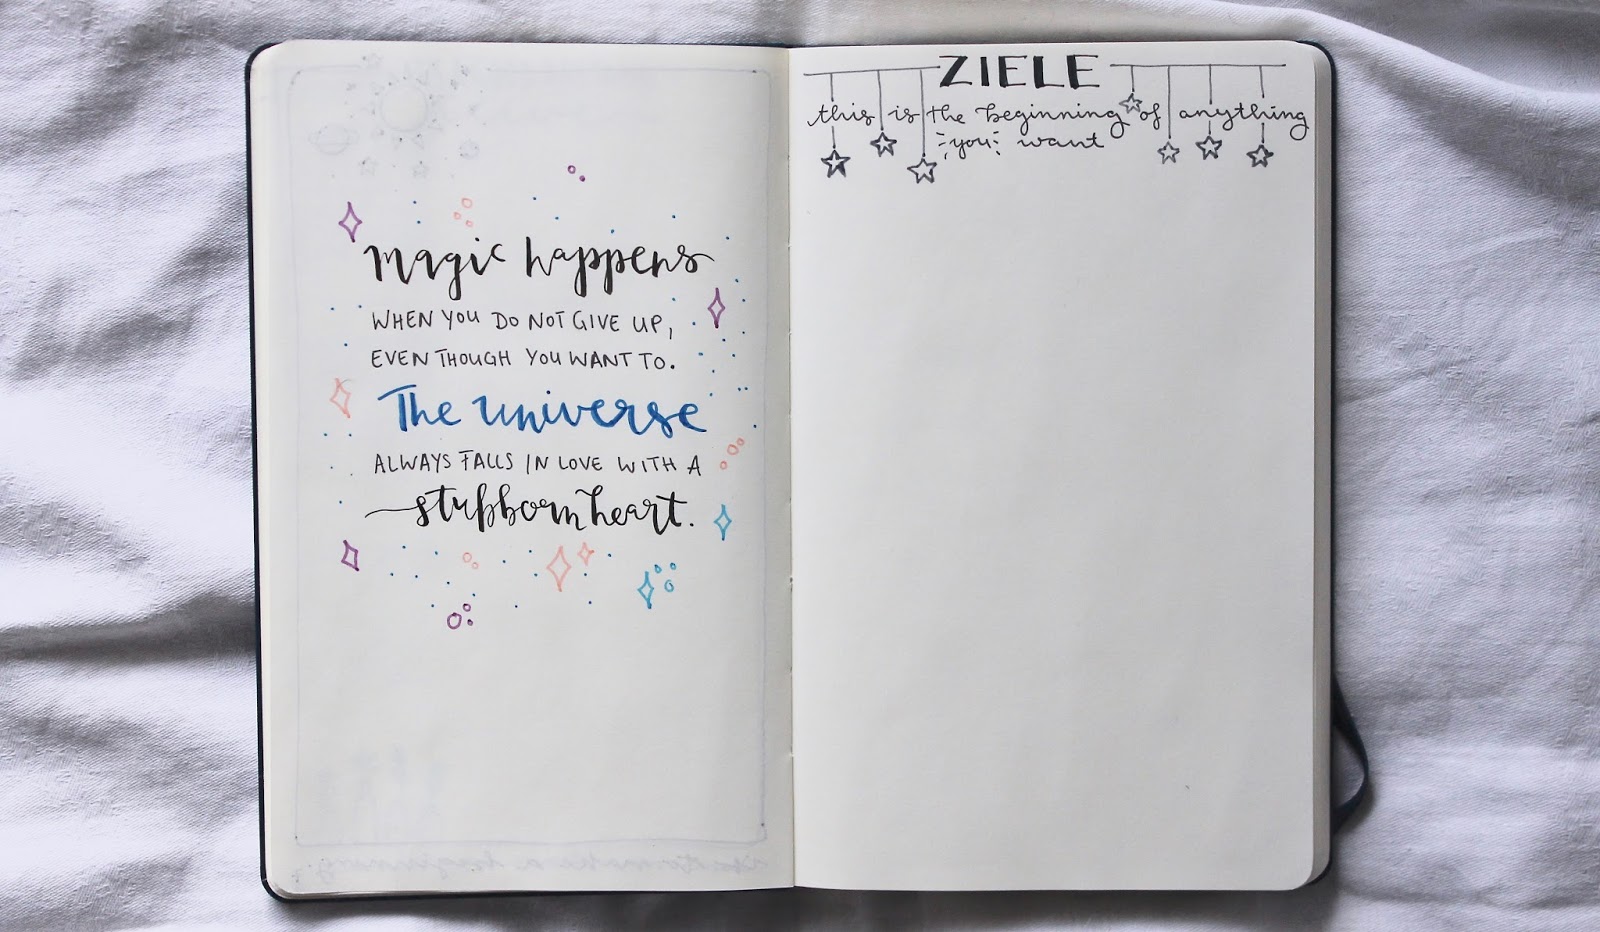 magic happens
WHEN YOU DO NOT GIVE UP,
EVEN THOUGH YOU WANT TO.
The universe
ALWAYS FALLS IN LOVE WITH A
stubborn heart.
ZIELE
this is the beginning of anything
you want